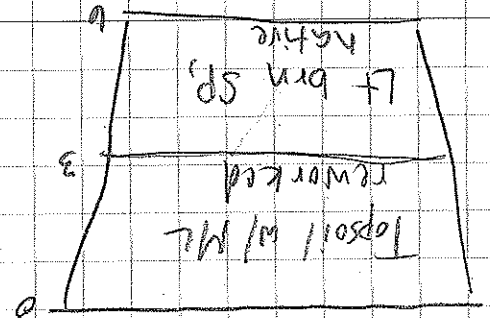 0
Topsoil w/ ML
reworked
3
Lt brn SP,
native
6